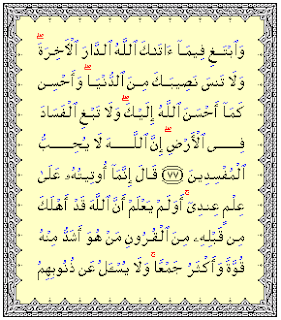 وَٱبْتَغِ فِيمَآ ءَاتَىٰكَ ٱللَّهُ ٱلدَّارَ ٱلْأَخِرَةَ ۖ
وَلَا تَنسَ نَصِيبَكَ مِنَ ٱلدُّنْيَا ۖ وَأَحْسِن
كَمَآ أَحْسَنَ ٱللَّهُ إِلَيْكَ ۖ وَلَا تَبْغِ ٱلْفَسَادَ
فِى ٱلْأَرْضِ ۖ إِنَّ ٱللَّهَ لَا يُحِبُّ
ٱلْمُفْسِدِينَ ٧٧ قَالَ إِنَّمَآ أُوتِيتُهُۥ عَلَىٰ
عِلْمٍ عِندِىٓ ۚ أَوَلَمْ يَعْلَمْ أَنَّ ٱللَّهَ قَدْ أَهْلَكَ
مِن قَبْلِهِۦ مِنَ ٱلْقُرُونِ مَنْ هُوَ أَشَدُّ مِنْهُ
قُوَّةً وَأَكْثَرُ جَمْعًا ۚ وَلَا يُسْـَٔلُ عَن ذُنُوبِهِمُ